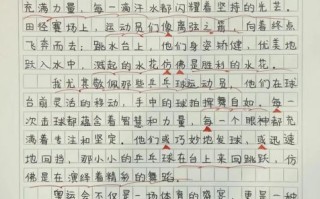 充满力量，每一滴汗水都闪耀着坚持的光芒。
田径赛场上，运动员们像离弦之箭，向着终点
飞奔而去；跳水台上，他们身姿矫健，优美地
跃入水中，溅起的水花仿佛是胜利的水花。
我尤其敬佩那些乒乓球运动员，他们在球
台前灵活的移动，手中的球拍挥舞自如。每一
次击球都蕴含着智慧和力量，每一个眼神都充
满着专注和坚定。他们或巧妙地发球，或迅速
地回挡，那小小的乒乓球在台上来回跳跃，仿
佛是在演绎着精彩的舞蹈。
奥运会不仅是一场体育的盛宴，更是一种